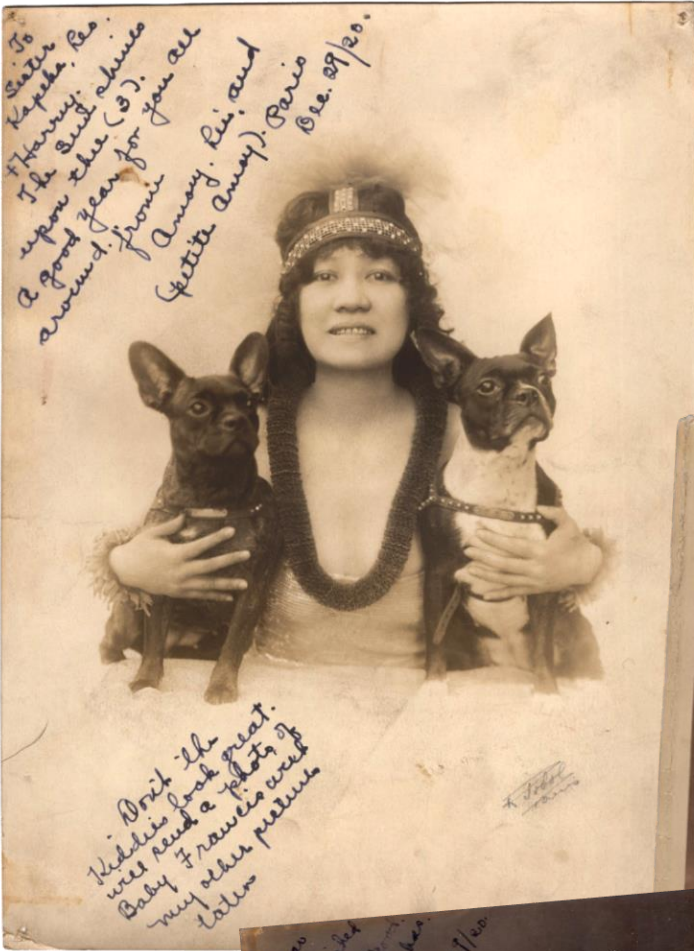 To
Sister
Kapeka, Leo.
+ Harry.
The Sun shines
upon thee (3).
A good year for you all
around. from
Amoy. Lei, and
(petite Amoy). Paris
Dec. 29/20.
Don't the
Kiddies look great.
will send a photo of
Baby Francis and
my other picture
later
Paris
/20.